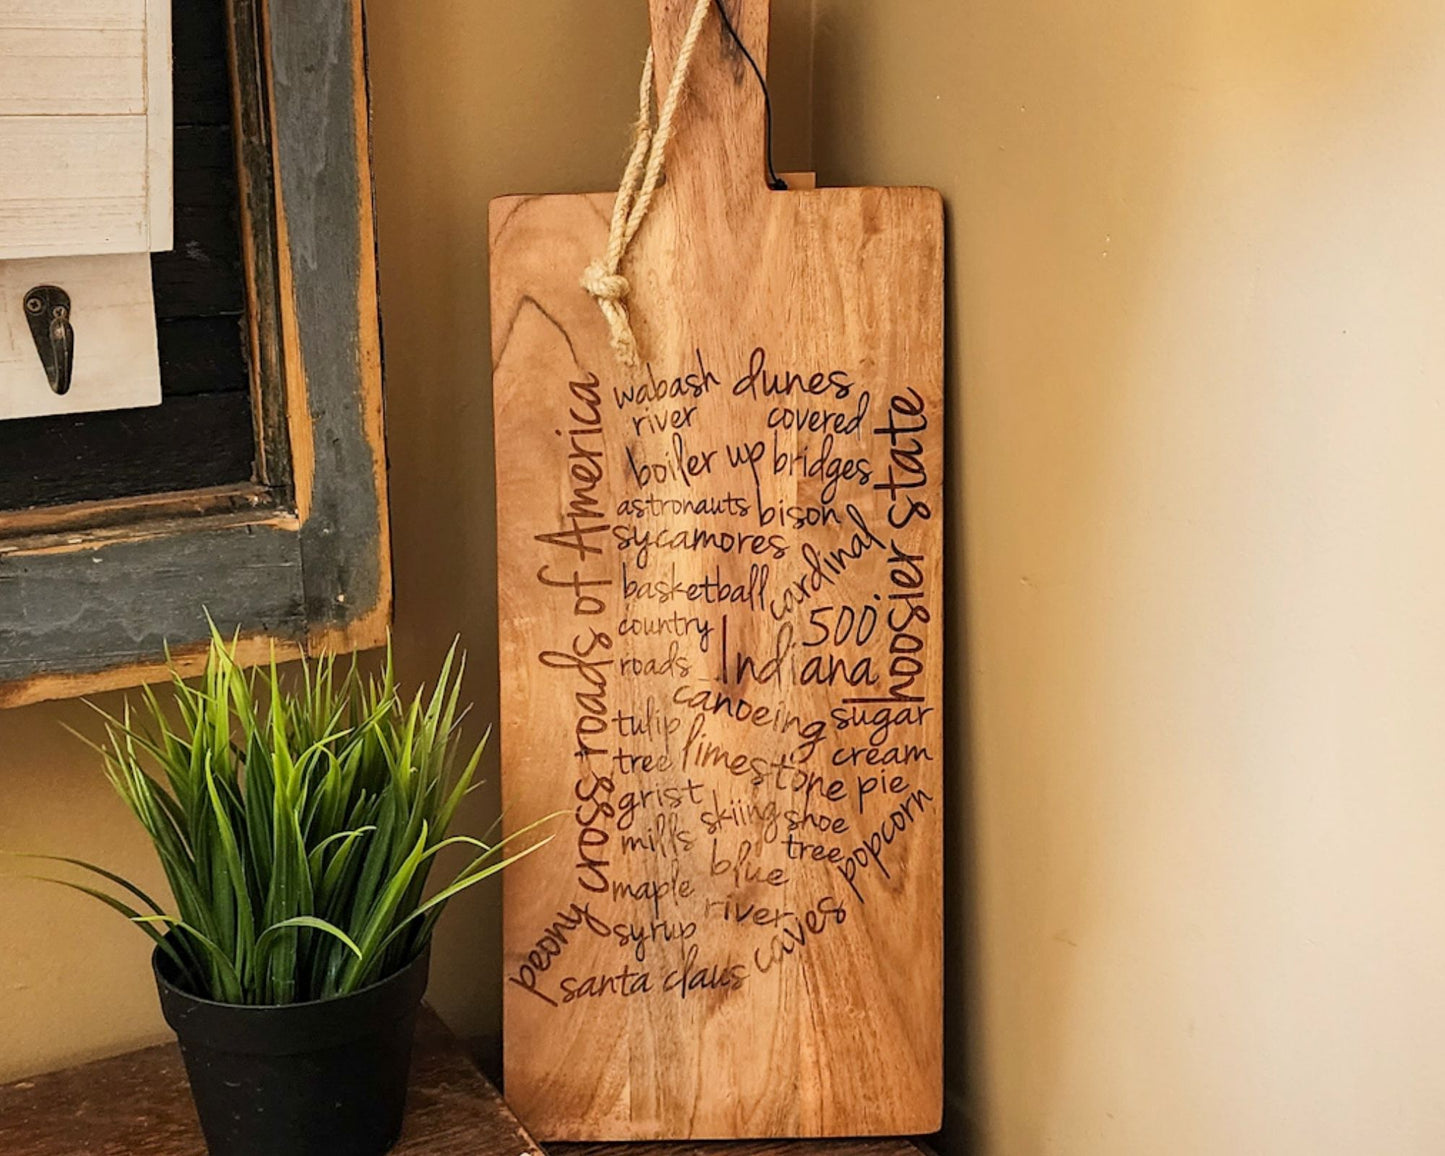 wabash dunes
river covered
boiler up bridges
astronauts bison
sycamores
cardinal
basketball
country 500
roads Indiana
canoeing
tulip sugar
tree limestone cream
grist pie
mills skiing shoe
tree
popcorn
blue
maple river
syrup caves
santa claus
peony
cross roads of America
hoosier state